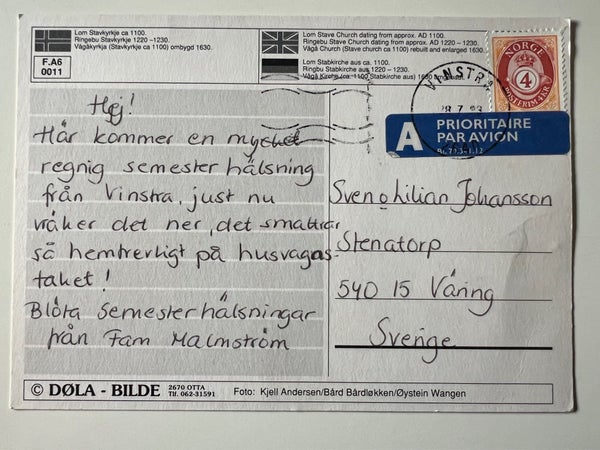 Lom Stavkyrkje ca 1100.
Ringebu Stavkyrkje 1220 -1230.
Vågåkyrkja (Stavkyrkje ca 1100) ombygd 1630.
Lom Stave Church dating from approx. AD 1100.
Ringebu Stave Church dating from approx. AD 1220 – 1230.
Vågå Church (Stave church ca 1100) rebuilt and enlarged 1630.
Lom Stabkirche aus ca. 1100.
Ringbu Stabkirche aus 1220 - 1230.
Vågå Kirche (ca 1100 Stabkirche aus) 1630
F.A6
0011
NORGE
4
POSTFRIM 4 KR
VINSTRA
28.7.93
A PRIORITAIRE
PAR AVION
Hej!
Här kommer en mycket
regnig semester hälsning
från Vinstra, just nu
vräker det ner, det smattrar
så hemtrevligt på husvagns-
taket!
Blöta semester hälsningar
från Fam Malmström
Sven o Lilian Johansson
Stenatorp
540 15 Väring
Sverige
© DØLA - BILDE
2670 OTTA
Tlf. 062-31591
Foto: Kjell Andersen/Bård Bårdløkken/Øystein Wangen